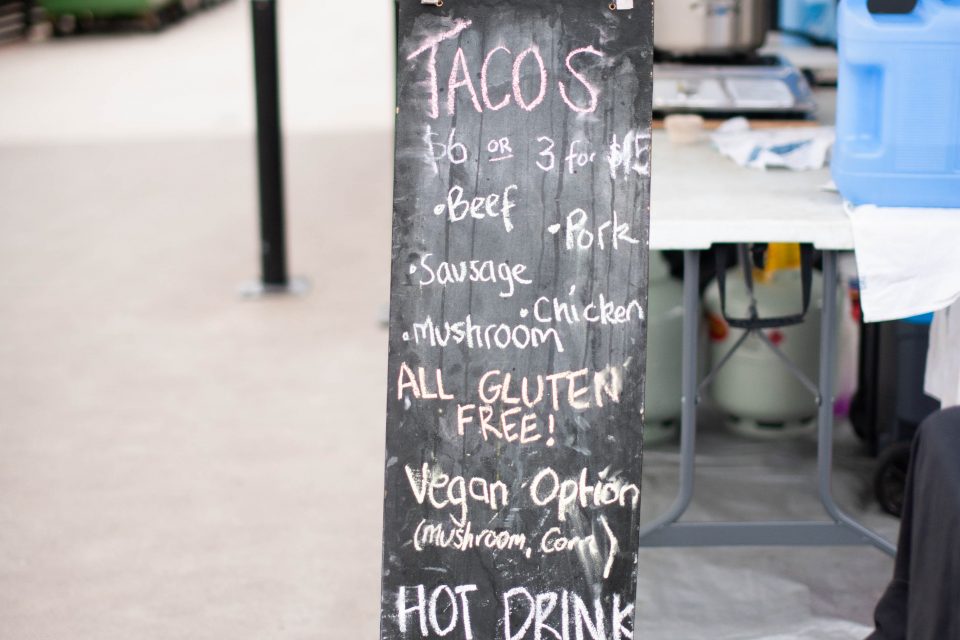 TACOS
$6 OR 3 for $15
• Beef
• Pork
• Sausage
• Chicken
• Mushroom
ALL GLUTEN
FREE!
Vegan Option
(Mushroom, Corn)
HOT DRINK